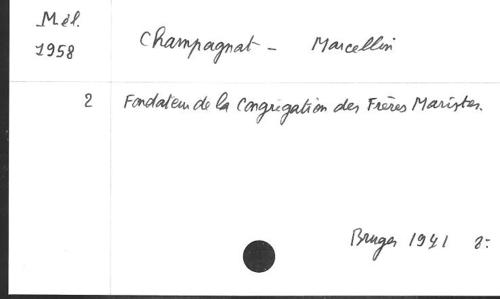 Mél.
1958
Champagnat - Marcellin
2 Fondateur de la Congrégation des Frères Maristes.
Bruges 1941 8: